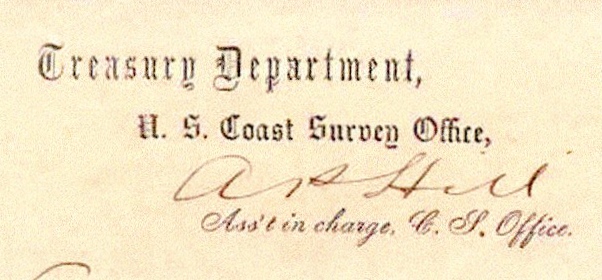 Treasury Department,
U. S. Coast Survey Office,
A P Hill
Ass't in charge, C. S. Office.